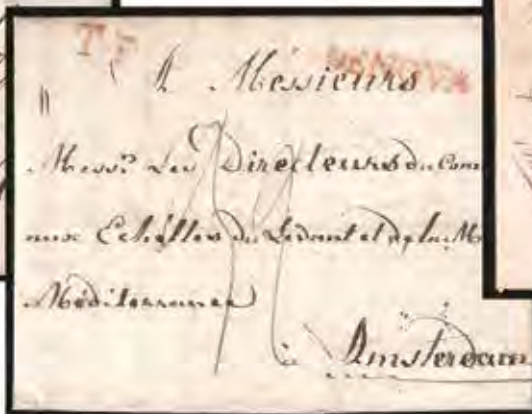 T.F
A Méssieurs
Mess.rs Les Directeurs du Com
aux Echélles du Levant et de la M
Méditerranée
à Amsterdam